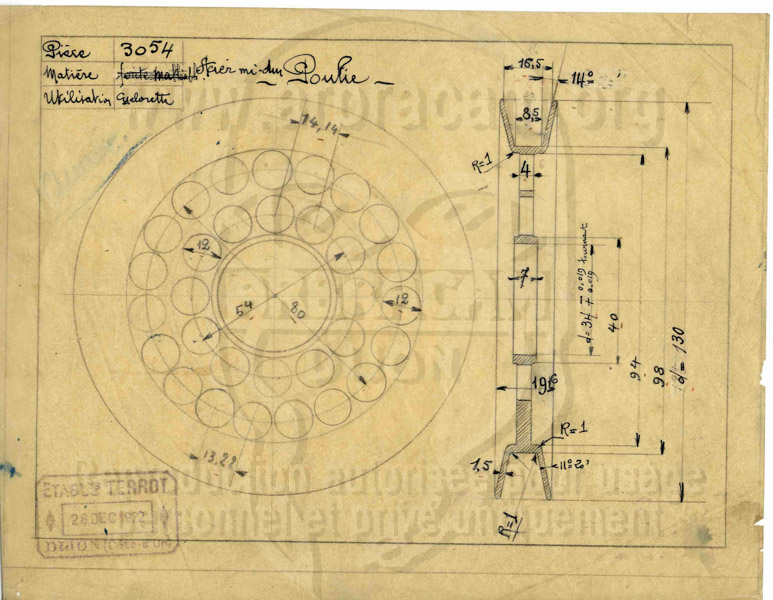 Pièce 3054
Matière Acier mi-dur Poulie
Utilisation Cyclorette
www.amoracam.org
16,5
14°
14,14
8,5
R=1
4
12
7
d=34 ∓ 0,019 tournant
0,019
40
54
80
12
94
98
d=130
19,6
R=1
13,29
1,5
11°20'
R=1
Reproduction autorisée pour usage
personnel et privé uniquement
ETABLTS TERROT
28 DEC 1922
DIJON (Côte d'Or)